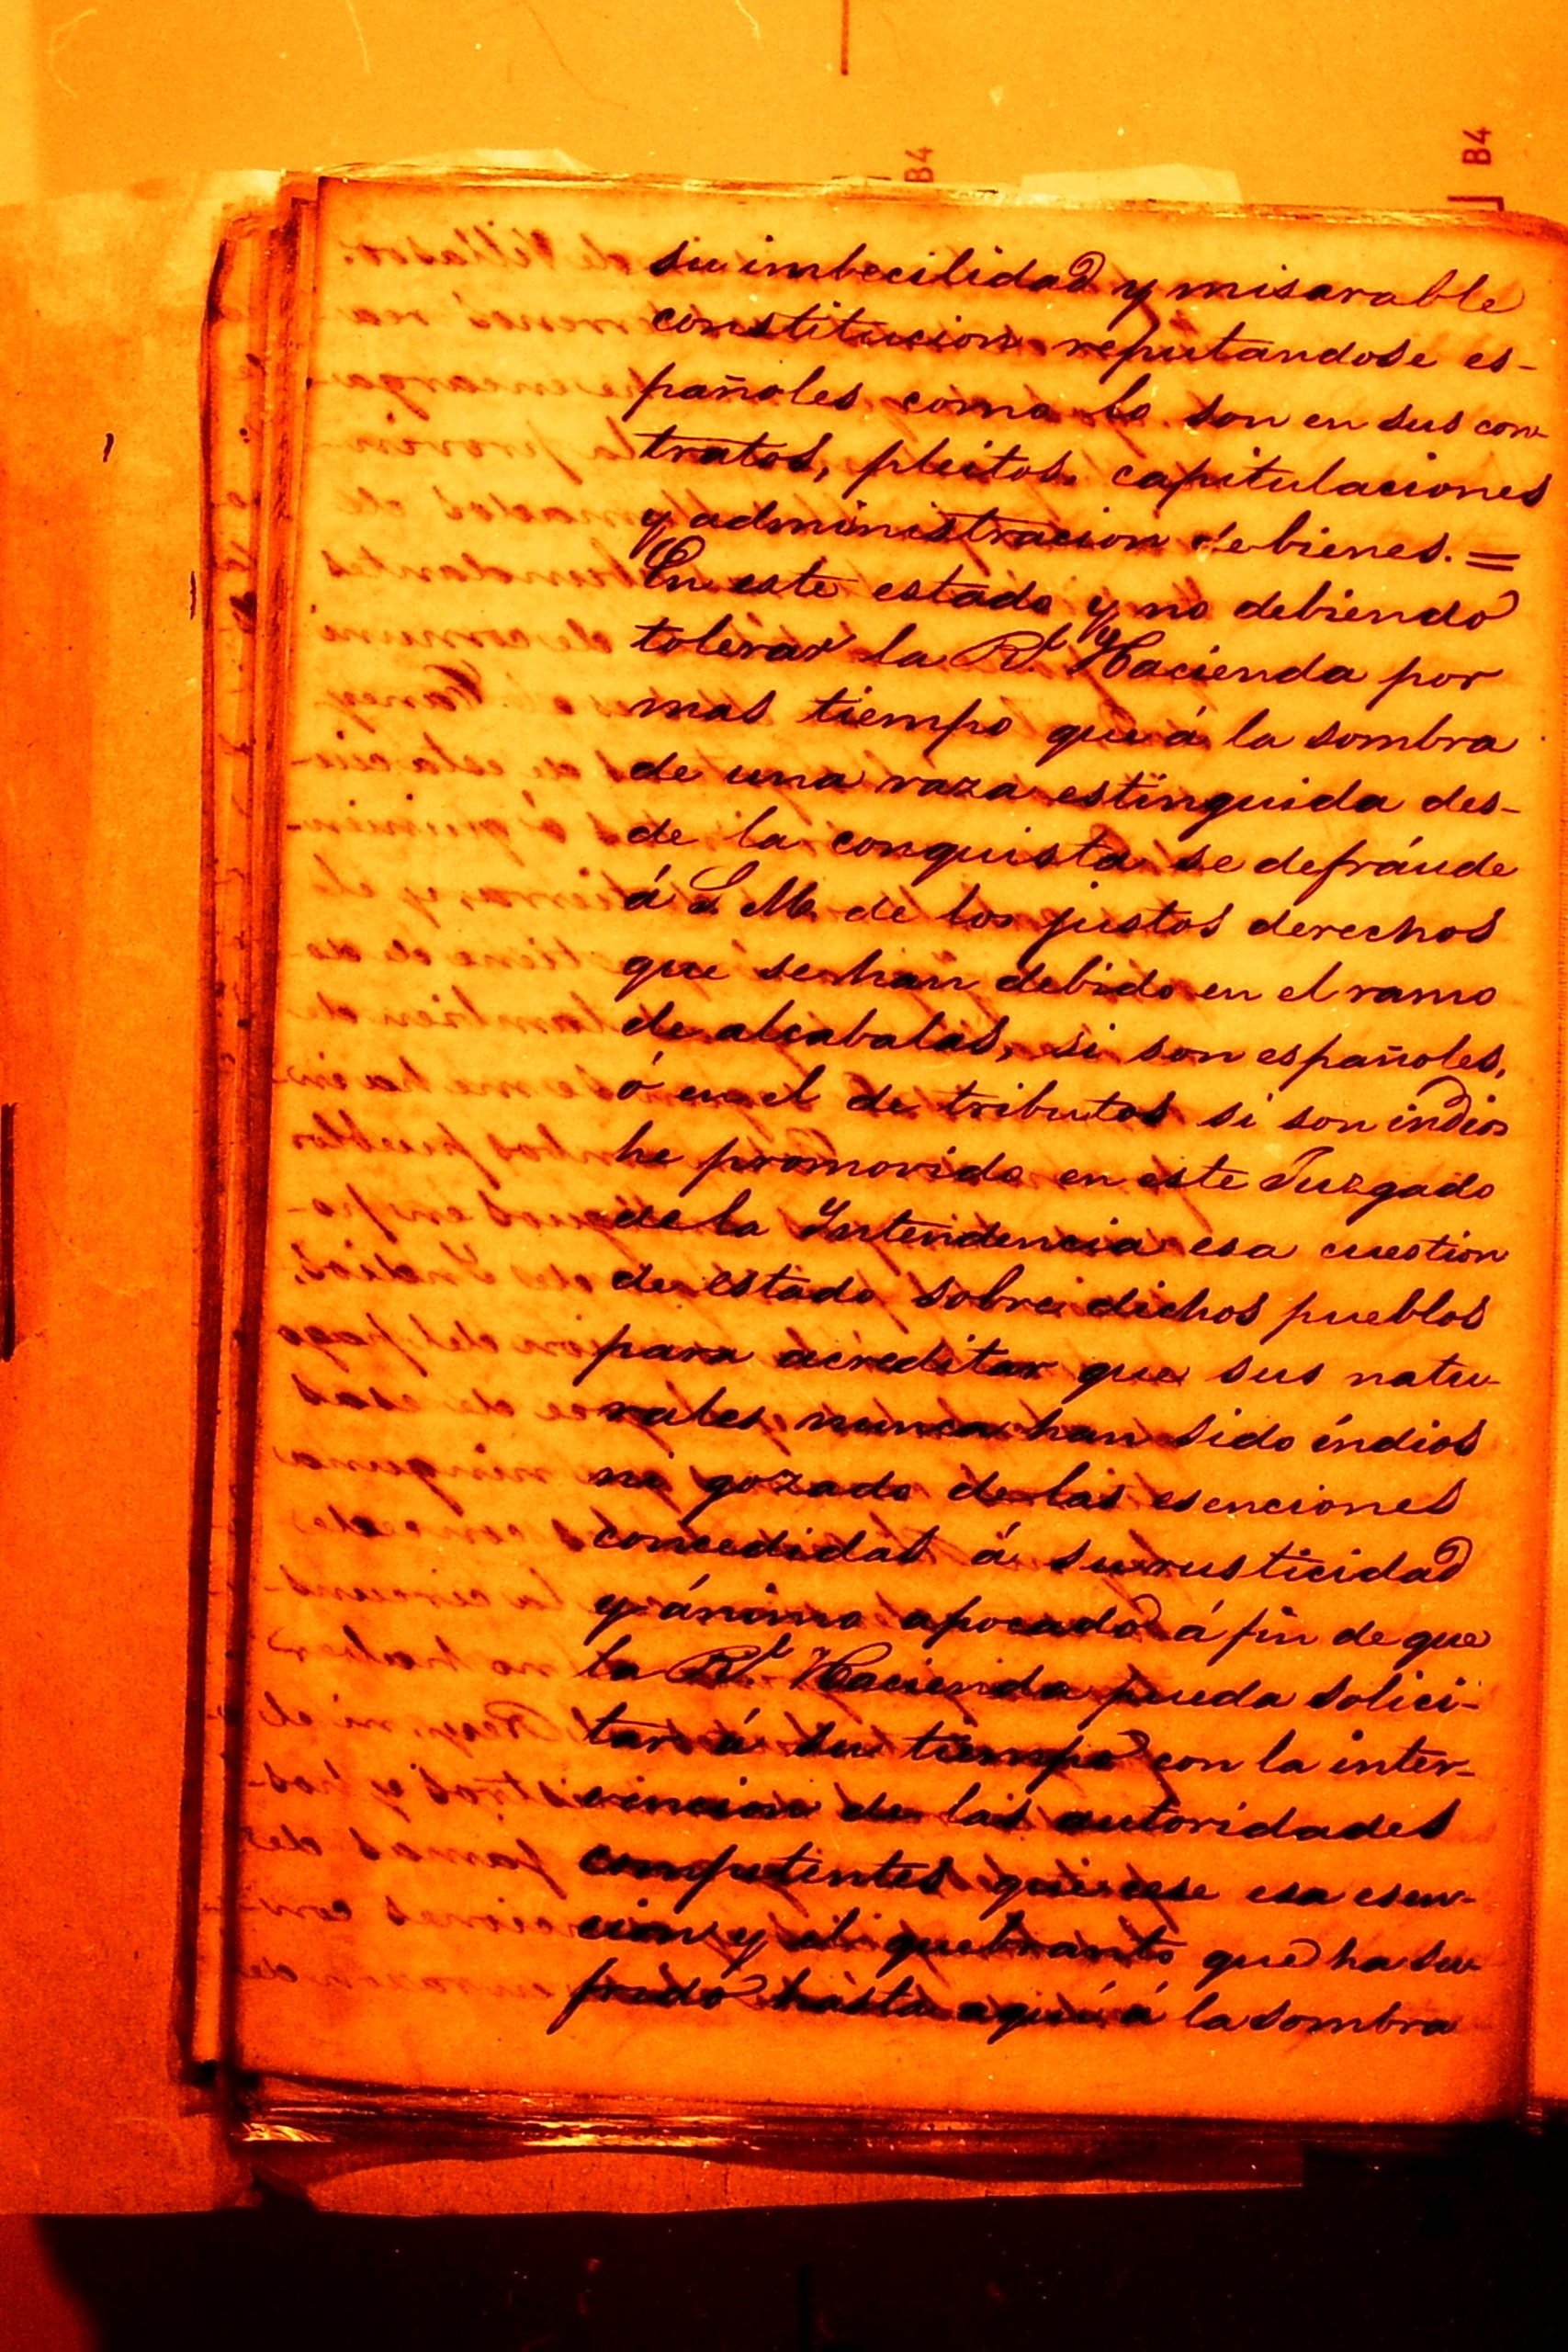 B4
B4
su imbecilidad y misarable
constitucion reputandose es-
pañoles como lo son en sus con-
tratos, pleitos, capitulaciones
y administracion de bienes. =
En este estado y no debiendo
tolerar la Rl. Hacienda por
mas tiempo que á la sombra
de una raza estinguida des-
de la conquista se defráude
á S. M. de los justos derechos
que se han debido en el ramo
de alcabalas, si son españoles,
ó en el de tributos si son indios
he promovido en este Juzgado
de la Yntendencia esa cuestion
de estado sobre dichos pueblos
para acreditar que sus natu-
rales nunca han sido índios
ni gozado de las esenciones
concedidas á su rusticidad
y ánimo apocado á fin de que
la Rl. Hacienda pueda solici-
tar á su tiempo con la inter-
vencion de las autoridades
competentes que cese esa esen-
cion y el quebranto que ha su-
frido hasta aquí á la sombra